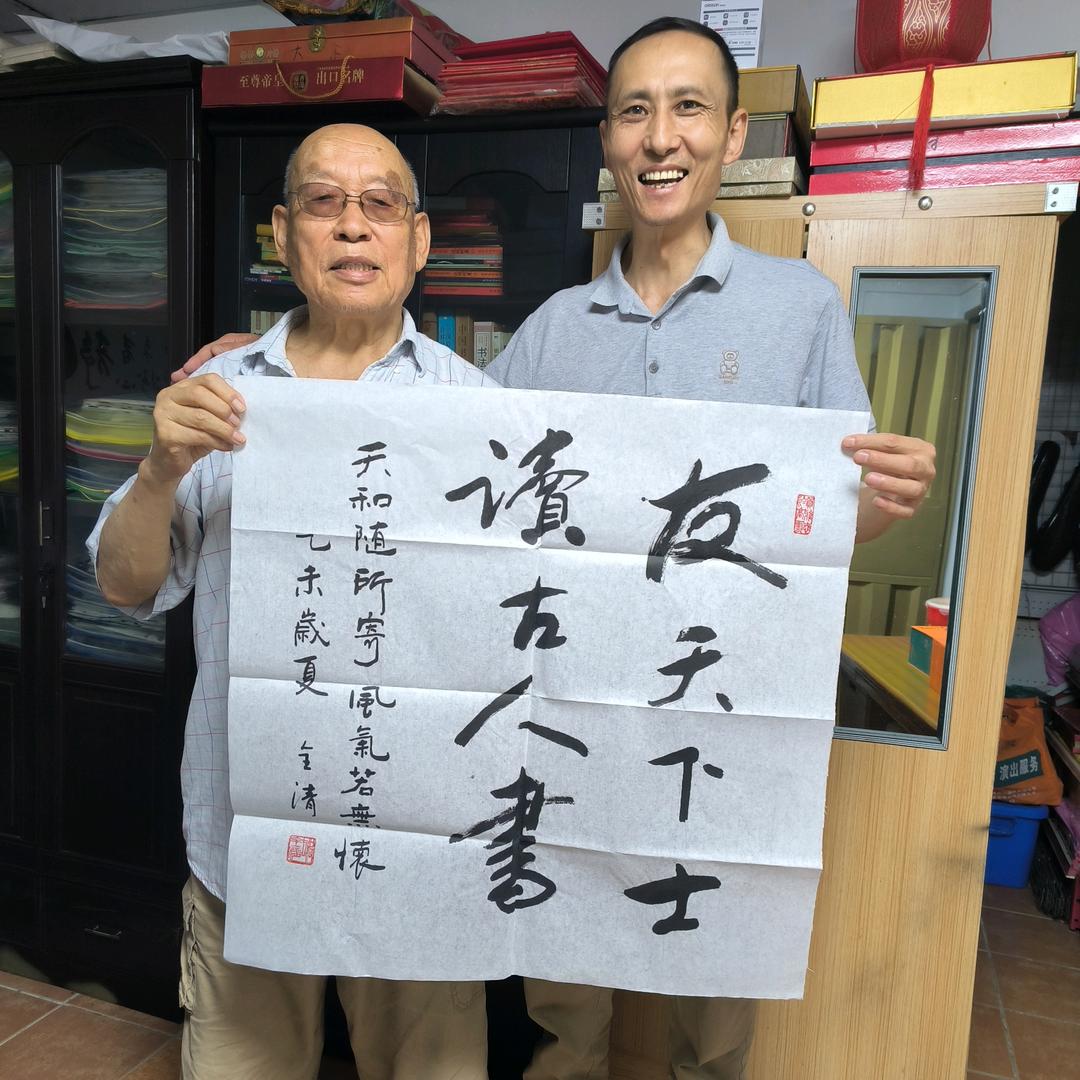 友天下士
讀古人書
天和随所寄風氣若無懷
乙未歲夏 全清
至尊帝皇 出口名牌
书法
演出服务